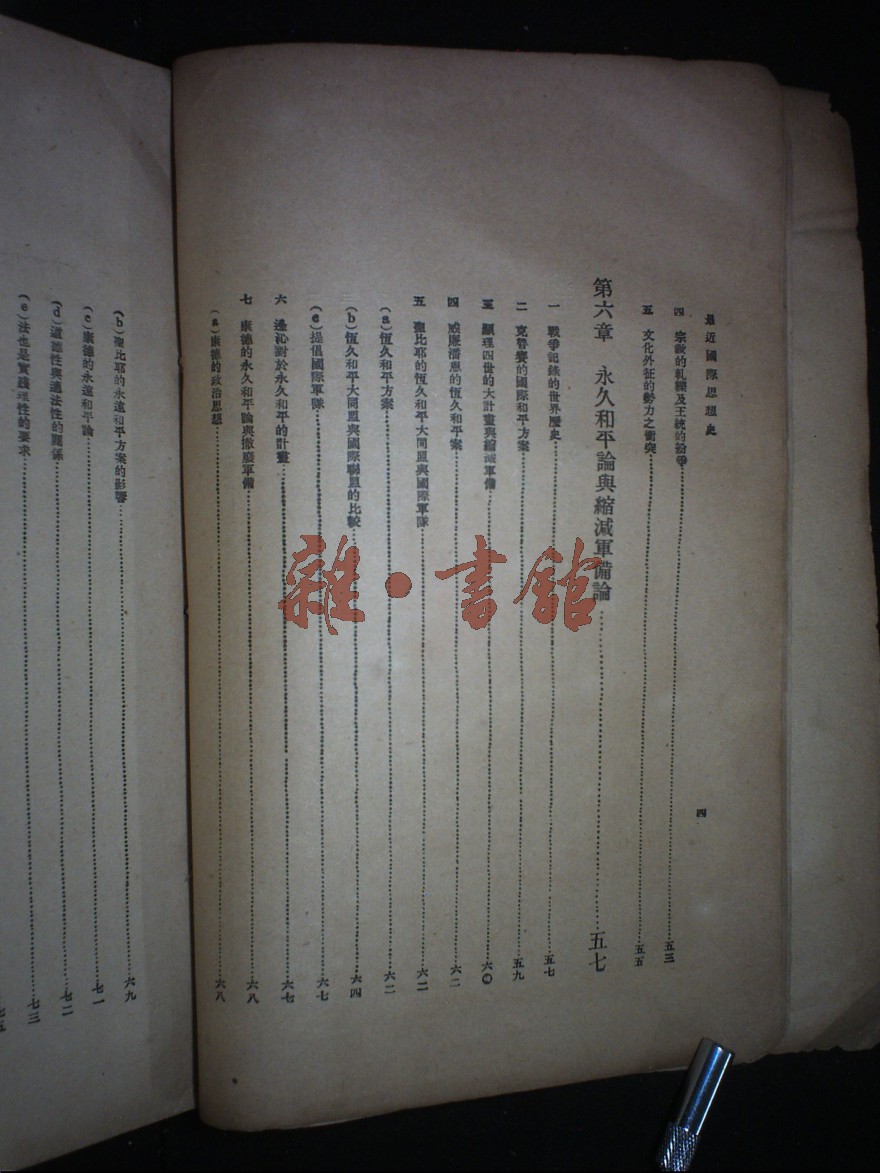 最近國際思想史
四
四 宗敎的軋轢及王統的紛爭……五三
五 文化外征的勢力之衝突……五五
第六章 永久和平論與縮減軍備論……五七
一 戰爭記錄的世界歷史……五七
二 克魯賽的國際和平方案……五九
三 顯理四世的大計畫與縮減軍備……六〇
四 威廉潘恩的恆久和平案……六二
五 聖比耶的恆久和平大同盟與國際軍隊……六二
(a)恆久和平方案……六二
(b)恆久和平大同盟與國際聯盟的比較……六四
(c)提倡國際軍隊……六七
六 邊沁對於永久和平的計畫……六七
七 康德的永久和平論與撤廢軍備……六八
(a)康德的政治思想……六八
(b)聖比耶的永遠和平方案的影響……六九
(c)康德的永遠和平論……七一
(d)道德性與適法性的關係……七二
(e)法也是實踐理性的要求……七三
七五
雜·書館